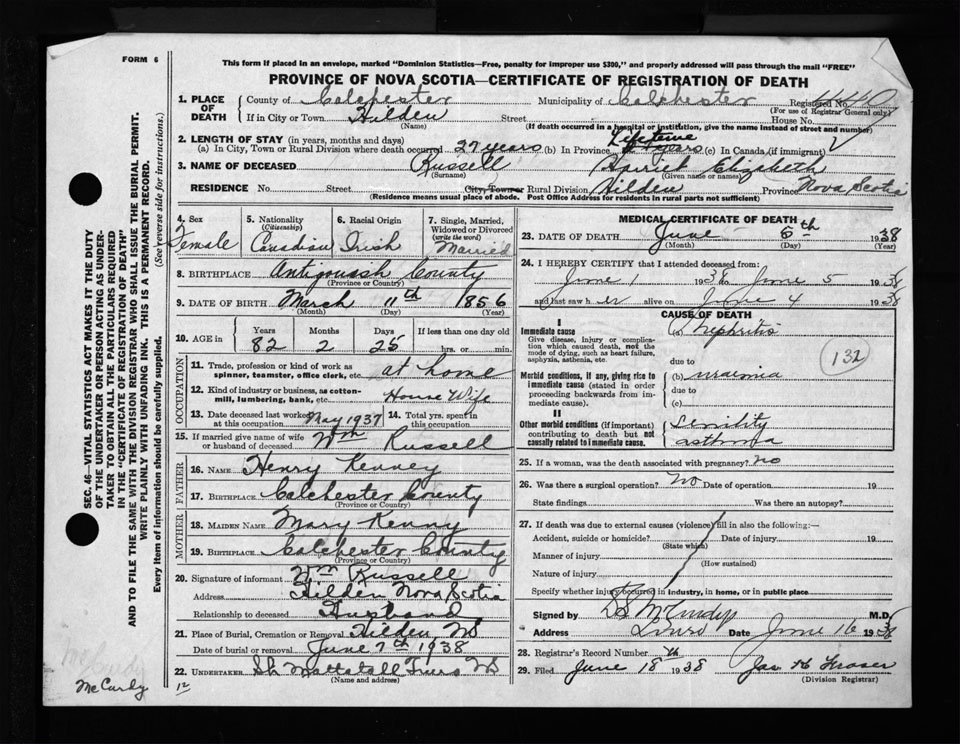 FORM 6
This form if placed in an envelope, marked "Dominion Statistics—Free, penalty for improper use $300," and properly addressed will pass through the mail "FREE"
PROVINCE OF NOVA SCOTIA—CERTIFICATE OF REGISTRATION OF DEATH
1. PLACE OF DEATH
County of Colchester Municipality of Colchester Registered No.
(For use of Registrar General only)
If in City or Town Hilden Street House No.
(Name) (If death occurred in a hospital or institution, give the name instead of street and number)
2. LENGTH OF STAY (in years, months and days)
(a) In City, Town or Rural Division where death occurred 27 years (b) In Province Lifetime years (c) In Canada (if immigrant)
3. NAME OF DECEASED Russell Harriet Elizabeth
(Surname) (Given name or names)
RESIDENCE No. Street City, Town or Rural Division Hilden Province Nova Scotia
(Residence means usual place of abode. Post Office Address for residents in rural parts not sufficient)
4. Sex Female
5. Nationality (Citizenship) Canadian
6. Racial Origin Irish
7. Single, Married, Widowed or Divorced (write the word) Married
8. BIRTHPLACE Antigonish County
(Province or Country)
9. DATE OF BIRTH March 11th 1856
(Month) (Day) (Year)
10. AGE in Years Months Days If less than one day old
82 2 25 hrs. or min.
OCCUPATION
11. Trade, profession or kind of work as spinner, teamster, office clerk, etc. at home
12. Kind of industry or business, as cotton-mill, lumbering, bank, etc. House Wife
13. Date deceased last worked at this occupation May 1937
14. Total yrs. spent in this occupation
15. If married give name of wife or husband of deceased Wm Russell
FATHER
16. NAME Henry Kenney
17. BIRTHPLACE Colchester County
(Province or Country)
MOTHER
18. MAIDEN NAME Mary Kenny
19. BIRTHPLACE Colchester County
(Province or Country)
20. Signature of informant Wm Russell
Address Hilden Nova Scotia
Relationship to deceased Husband
21. Place of Burial, Cremation or Removal Hilden, NS
Date of burial or removal June 7th 1938
22. UNDERTAKER Mattatall Truro NS
(Name and address)
MEDICAL CERTIFICATE OF DEATH
23. DATE OF DEATH June 5th 1938
(Month) (Day) (Year)
24. I HEREBY CERTIFY that I attended deceased from:
June 1 1938 to June 5 1938
and last saw her alive on June 4 1938
CAUSE OF DEATH
I
Immediate cause (a) Nephritis
Give disease, injury or complication which caused death, not the mode of dying, such as heart failure, asphyxia, asthenia, etc.
due to
132
Morbid conditions, if any, giving rise to immediate cause (stated in order proceeding backwards from immediate cause).
(b) uraemia
due to
(c)
II
Other morbid conditions (if important) contributing to death but not causally related to immediate cause.
Senility
asthma
25. If a woman, was the death associated with pregnancy? No
26. Was there a surgical operation? No Date of operation 19
State findings Was there an autopsy?
27. If death was due to external causes (violence) fill in also the following:—
Accident, suicide or homicide? Date of injury 19
(State which)
Manner of injury
(How sustained)
Nature of injury
Specify whether injury occurred in industry, in home, or in public place
Signed by McCurdy M.D.
Address Truro Date June 16 1938
28. Registrar's Record Number
29. Filed June 18th 1938 Jas H Fraser
(Division Registrar)
SEC. 46—VITAL STATISTICS ACT MAKES IT THE DUTY
OF THE UNDERTAKER OR PERSON ACTING AS UNDER-
TAKER TO OBTAIN ALL THE PARTICULARS REQUIRED
IN THE "CERTIFICATE OF REGISTRATION OF DEATH"
AND TO FILE THE SAME WITH THE DIVISION REGISTRAR WHO SHALL ISSUE THE BURIAL PERMIT.
WRITE PLAINLY WITH UNFADING INK. THIS IS A PERMANENT RECORD.
Every item of information should be carefully supplied. (See reverse side for instructions.)
McCurdy
McCurdy
12